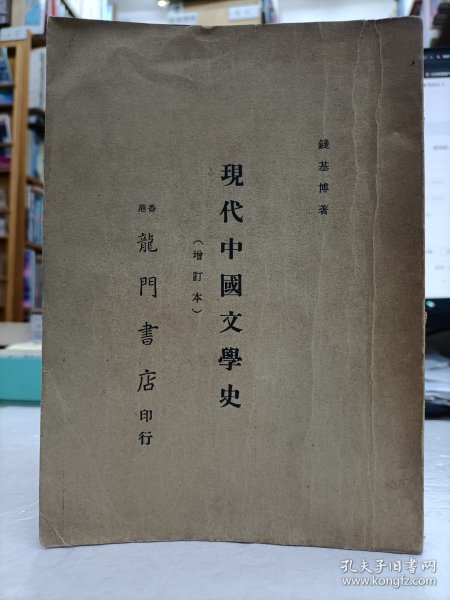 錢基博著
現代中國文學史
（增訂本）
香港
龍門書店印行
孔夫子旧书网
www.kongfz.com